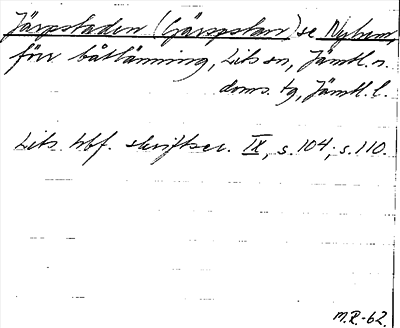 Järpstaden (Järpstan) se Nyhem,
förr båtlänning, Lits sn, Jämtl. n.
doms. tg, Jämtl. l.
Lits hbf. skriftser. IX, s. 104; s. 110.
M.R.-62.